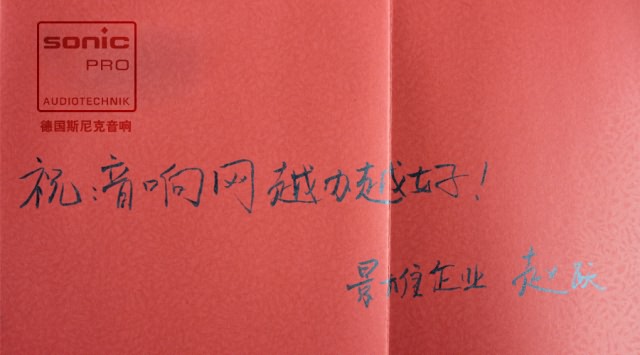 sonic
PRO
AUDIOTECHNIK
德国斯尼克音响
祝:音响网越办越好!
景雄企业 赵跃